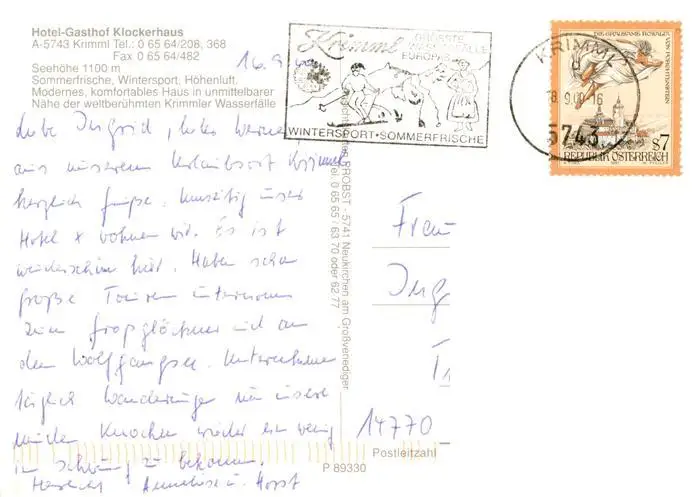 Hotel-Gasthof Klockerhaus
A-5743 Krimml Tel.: 0 65 64/208, 368
Fax 0 65 64/482
Seehöhe 1100 m
Sommerfrische, Wintersport, Höhenluft,
Modernes, komfortables Haus in unmittelbarer
Nähe der weltberühmten Krimmler Wasserfälle
16.9.
Krimml
GRÖSSTE
WASSERFÄLLE
EUROPAS
WINTERSPORT-SOMMERFRISCHE
KRIMML
18.9.00-16
5743
DIE GRAUSAME ROSALIA
VON PORTENSTEIN
S7
REPUBLIK ÖSTERREICH
Liebe Ingrid, lieber Werner
aus unserem Urlaubsort Krimml
herzliche Grüße. Umseitig unser
Hotel x wohnen wir. Es ist
wunderschön hier. Haben schon
große Touren unternommen
zum Großglockner und an
den Wolfgangsee. Unternehmen
täglich Wanderungen um unsere
müden Knochen wieder ein wenig
in Schwung zu bekommen.
Herzlichst Annelise u. Horst
PROBST - 5741 Neukirchen am Großvenediger
Tel. 0 65 65 / 63 70 oder 62 77
Frau
Ing
14770
Postleitzahl
P 89330